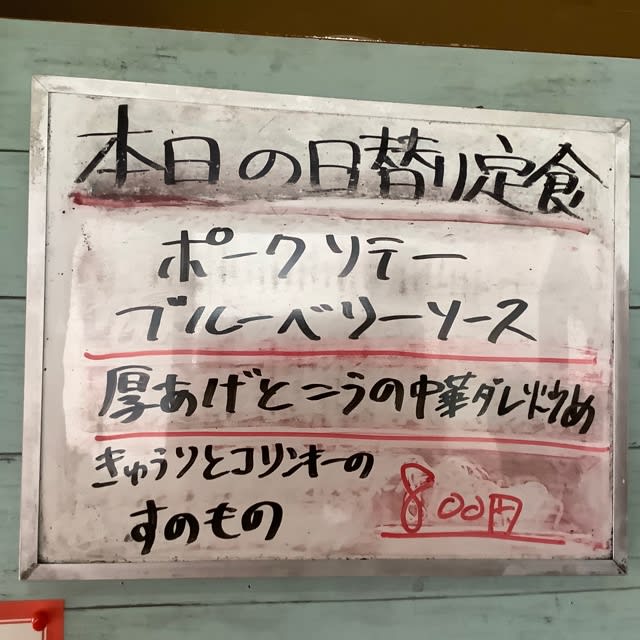 本日の日替り定食
ポークソテー
ブルーベリーソース
厚あげとニラの中華ダレ炒め
きゅうりとコリンキーの
すのもの
800円